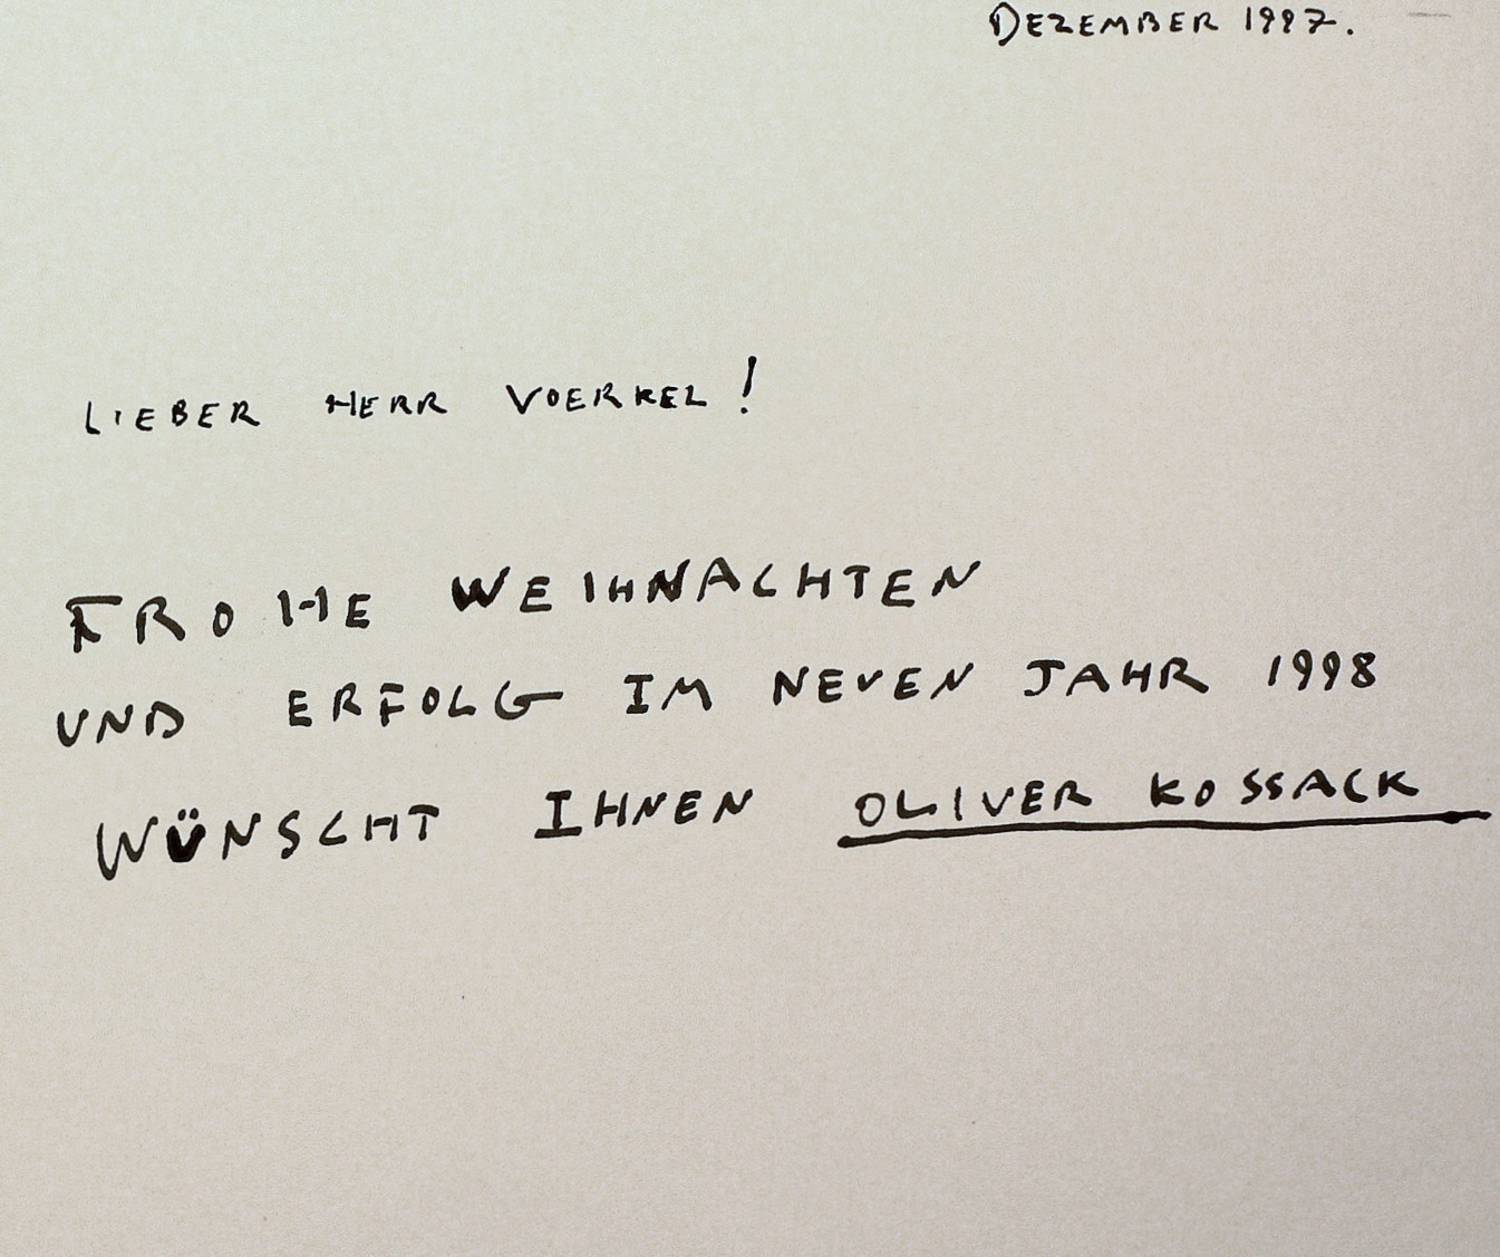 DEZEMBER 1997.
LIEBER HERR VOERKEL!
FROHE WEIHNACHTEN
UND ERFOLG IM NEUEN JAHR 1998
WÜNSCHT IHNEN OLIVER KOSSACK